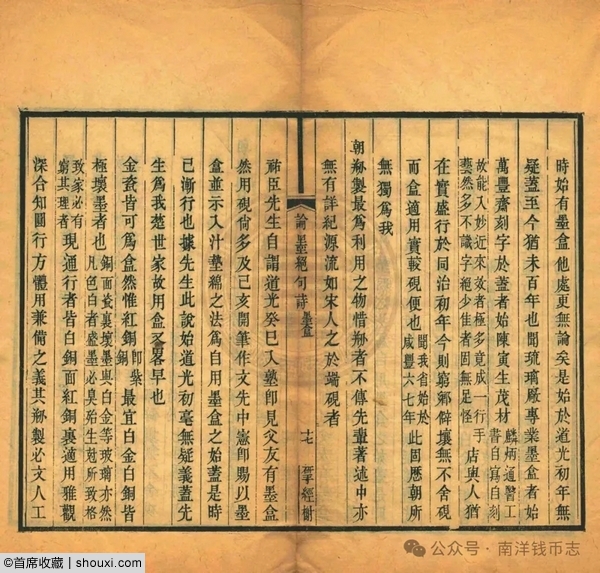 時始有墨盒他處更無論矣是始於道光初年無
疑蓋至今猶未百年也聞琉璃廠專業墨盒者始
萬豐齋刻字於蓋者始陳寅生茂材麟炳通醫工書自寫自刻
故能入妙近來效者極多竟成一行手藝然多不識字絕少佳者固無足怪店與人猶
在實盛行於同治初年今則窮鄉僻壤無不舍硯
而盒適用實較硯便也聞我省始於咸豐六七年此固歷朝所
無獨爲我
朝剙製最爲利用之物惜剙者不傳先輩著述中亦
無有詳紀源流如宋人之於端硯者
論墨絕句詩 墨盒 十七
祐臣先生自謂道光癸巳入塾卽見父友有墨盒
然用硯尙多及己亥開筆作文先中憲卽賜以墨
盒並示入汁墊綿之法爲自用墨盒之始蓋是時
已漸行也據先生此說始道光初毫無疑義蓋先
生爲我楚世家故用盒畧早也
金瓷皆可爲盒然惟紅銅卽紫銅最宜白金白銅皆
極壞墨者也銅面瓷裏壞墨與白金等玻璃亦然凡色白者盛墨必臭殆生尅所致格
致家必有窮其理者現通行者皆白銅面紅銅裏適用雅觀
深合知圓行方體用兼備之義其剙製必文人工
公众号·南洋钱币志
@首席收藏 | shouxi.com